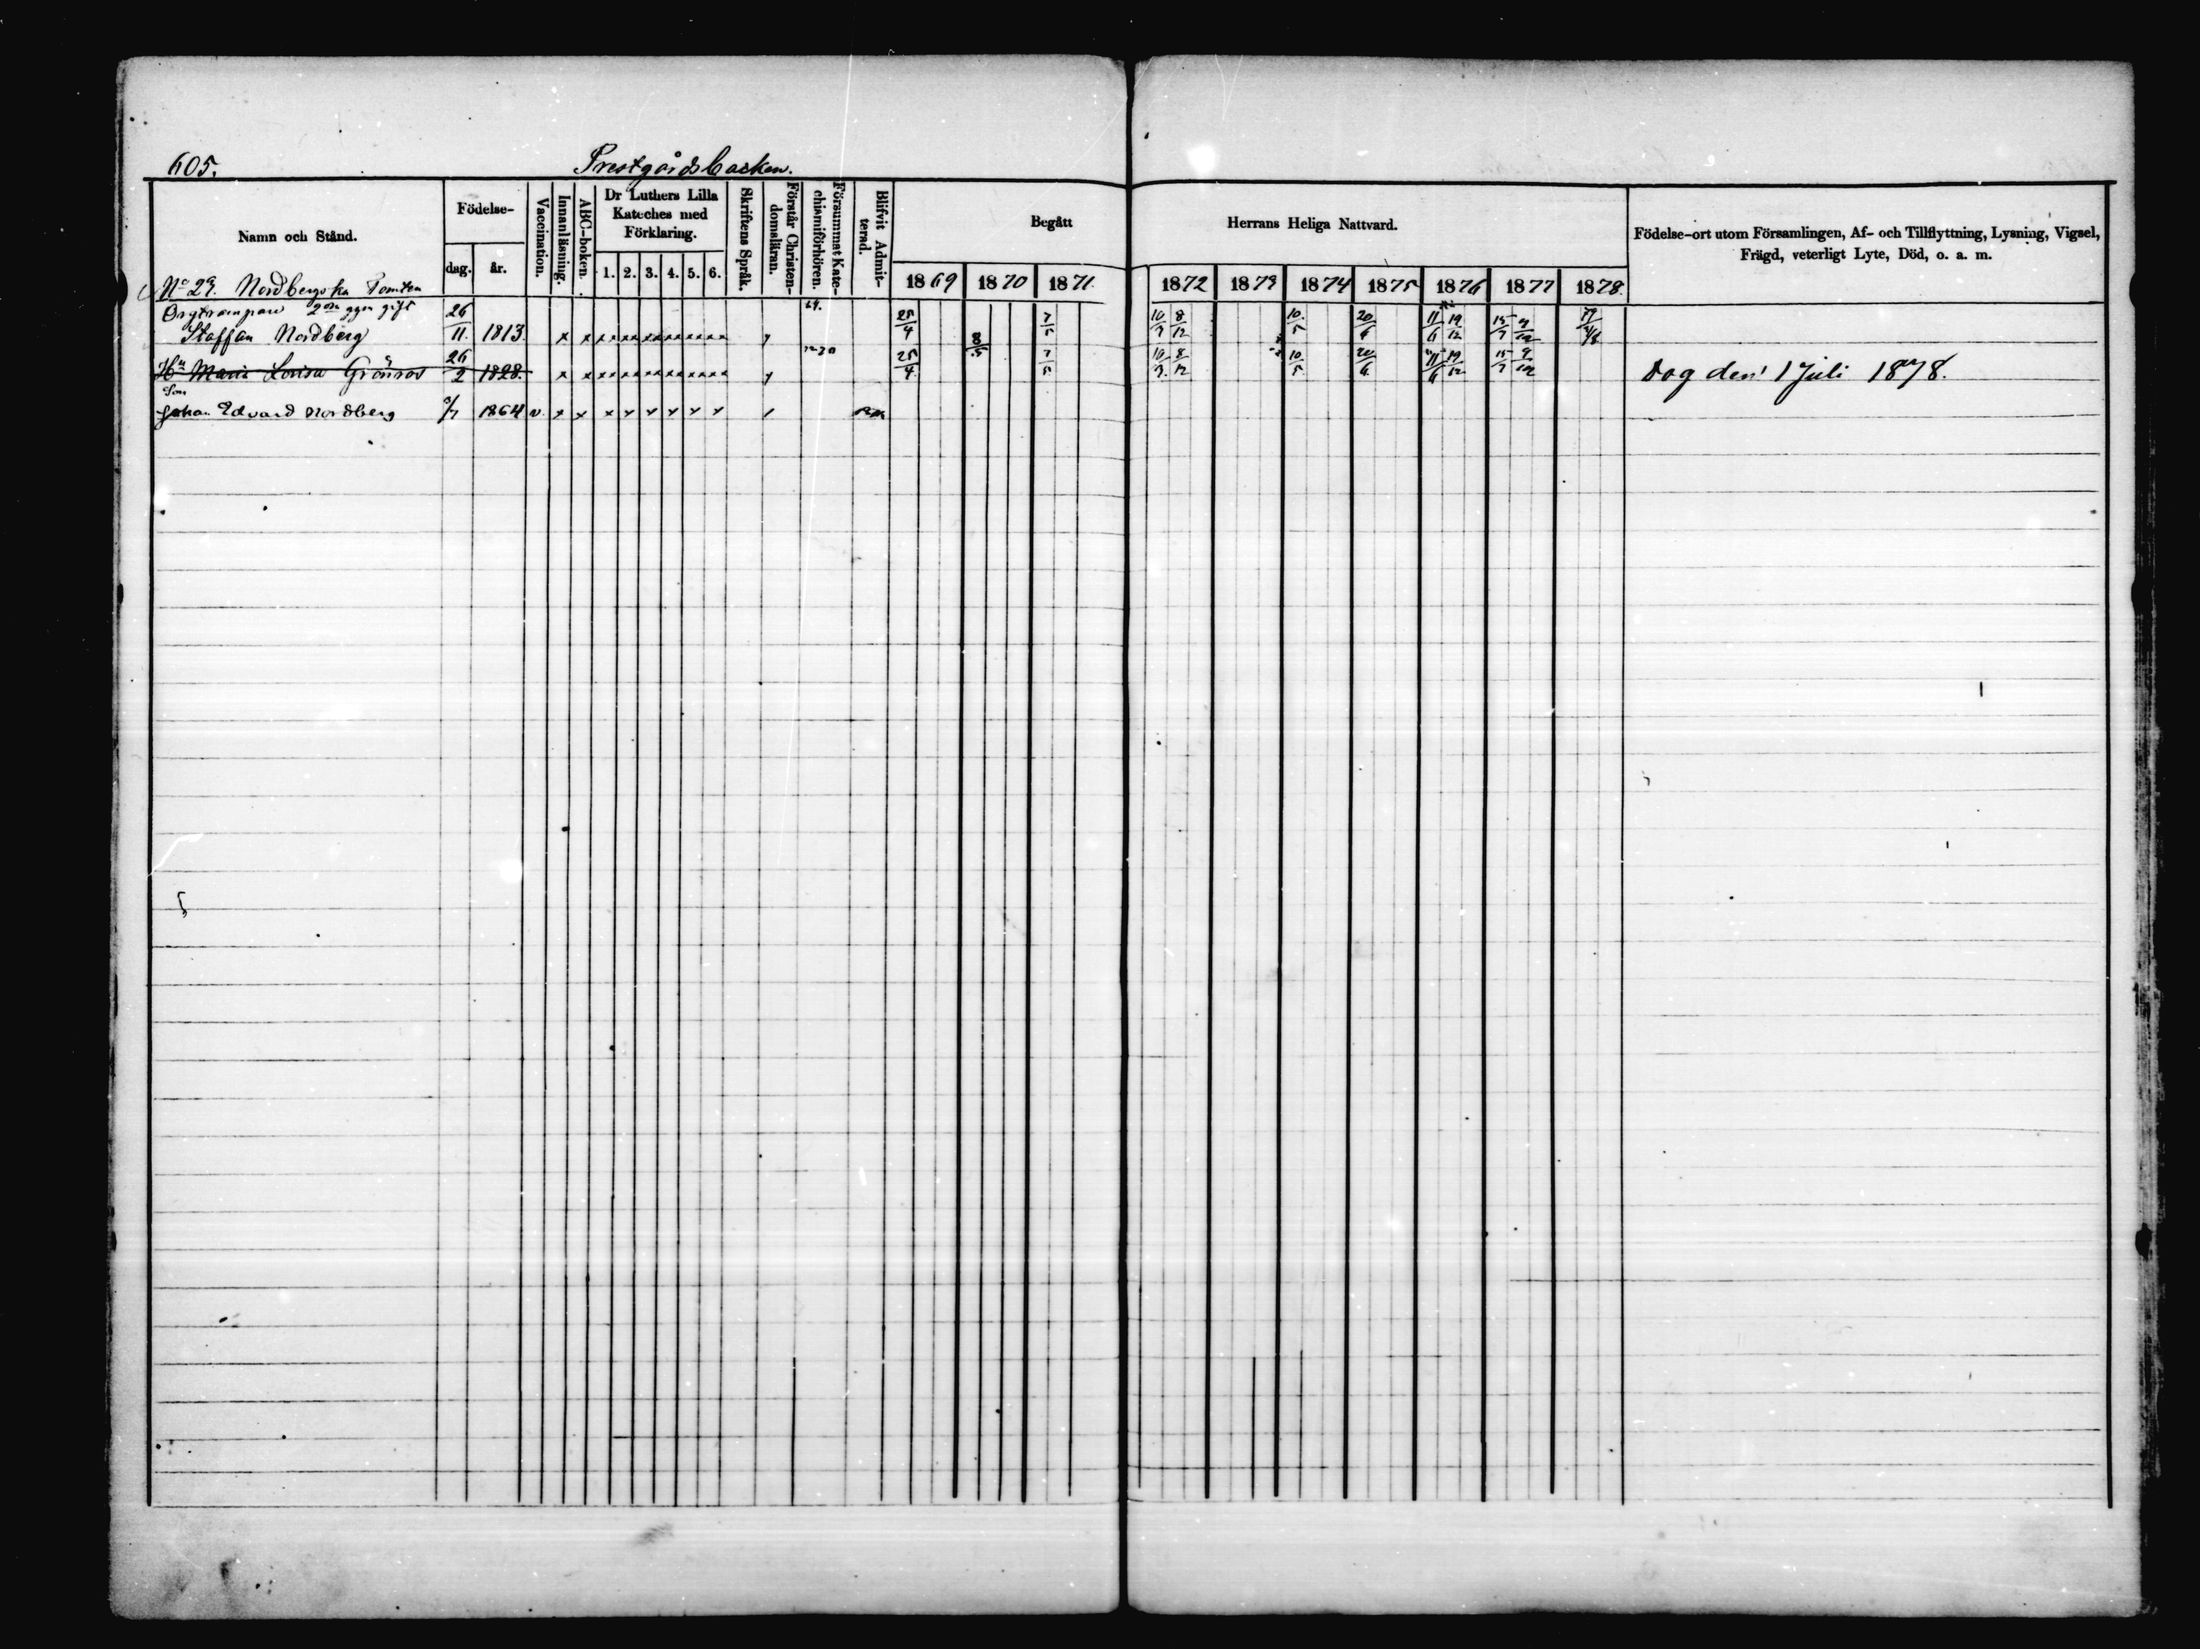 605. Prestgårdsbacken.
Namn och Stånd. Födelse- dag. år. Vaccination. Innanläsning. ABC-boken. Dr Luthers Lilla Kateches med Förklaring. 1. 2. 3. 4. 5. 6. Skriftens Språk. Förstår Christendomsläran. Försummat Katechismiförhören. Blifvit Admitterad. Begått Herrans Heliga Nattvard. Födelse-ort utom Församlingen, Af- och Tillflyttning, Lysning, Vigsel,
Frägd, veterligt Lyte, Död, o. a. m.
1869 1870 1871. 1872 1873 1874 1875 1876 1877 1878.
No 29. Nordbergska Tomten
Orgtrampare 2dra ggn gift
Staffan Nordberg 26/11. 1813. x x x x x x x x 25/4 8/5 7/5 10/7 8/12 10/5 20/6 11/6 19/12 15/7 9/12
Hu Maria Lovisa Grönros 26/2 1828. x x x x x x x x 25/4 7/5 10/7 8/12 10/5 20/6 11/6 19/12 15/7 9/12 Dog den 1 Juli 1878.
Son
Johan Edvard Nordberg 3/7 1864 v. x x x x x x x x